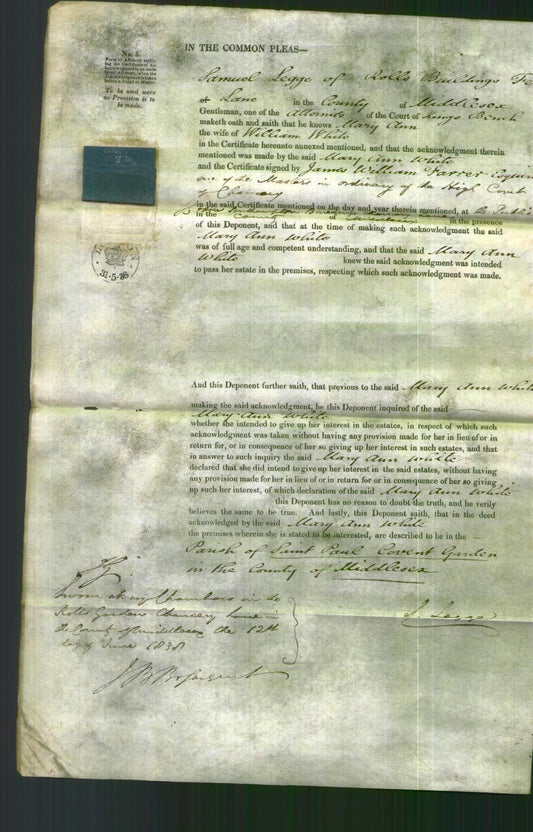 No. 5.
Form of Affidavit verify-
ing the Certificate of Ac-
knowledgment to be made
by an Attorney, when the
Acknowledgment is taken
before a Judge or Master.
To be used were
no Provision is to
be made.
IN THE COMMON PLEAS—
Samuel Legge of Rolls Buildings
Lane in the County of Middlesex
Gentleman, one of the Attornies of the Court of Kings Bench
maketh oath and saith that he knows Mary Ann
the wife of William White
in the Certificate hereunto annexed mentioned, and that the acknowledgment therein
mentioned was made by the said Mary Ann White
and the Certificate signed by James William Farrer Esquire
one of the Masters in ordinary of the High Court
of Chancery
in the said Certificate mentioned on the day and year therein mentioned, at the Public
in the in the presence
of this Deponent, and that at the time of making such acknowledgment the said
Mary Ann White
was of full age and competent understanding, and that the said Mary Ann
White knew the said acknowledgment was intended
to pass her estate in the premises, respecting which such acknowledgment was made.
31.5.38
And this Deponent further saith, that previous to the said Mary Ann White
making the said acknowledgment, he this Deponent inquired of the said
Mary Ann White
whether she intended to give up her interest in the estates, in respect of which such
acknowledgment was taken without having any provision made for her in lieu of or in
return for, or in consequence of her so giving up her interest in such estates, and that
in answer to such inquiry the said Mary Ann White
declared that she did intend to give up her interest in the said estates, without having
any provision made for her in lieu of or in return for or in consequence of her so giving
up such her interest, of which declaration of the said Mary Ann White
this Deponent has no reason to doubt the truth, and he verily
believes the same to be true. And lastly, this Deponent saith, that in the deed
acknowledged by the said Mary Ann White
the premises wherein she is stated to be interested, are described to be in the
Parish of Saint Paul Covent Garden
in the County of Middlesex
Sworn at my Chambers in the
Rolls Garden Chancery Lane in
the County of Middlesex the 12th
day of June 1838
S. Legge